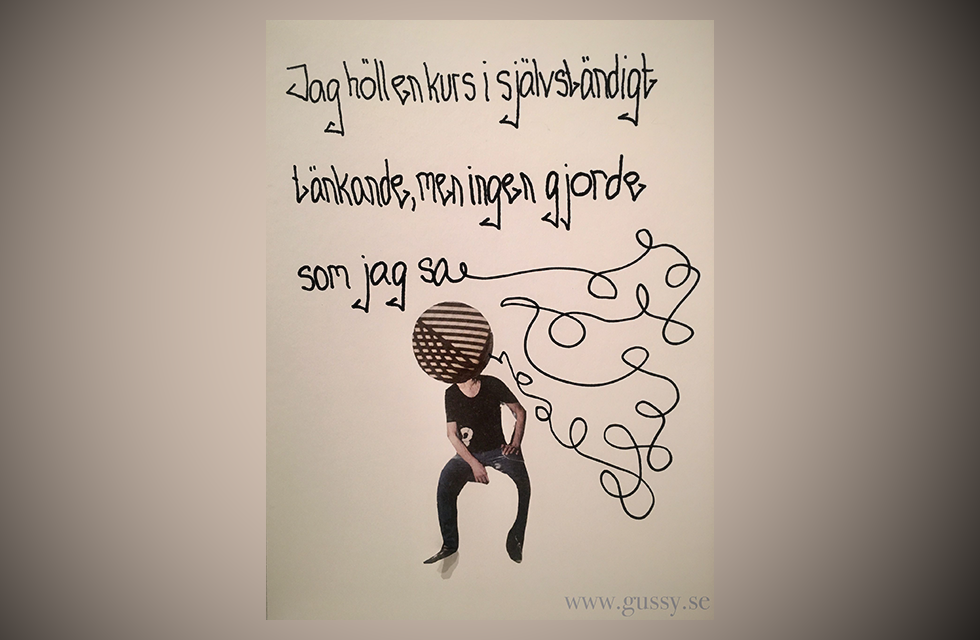 Jag höll en kurs i självständigt
tänkande, men ingen gjorde
som jag sa
www.gussy.se